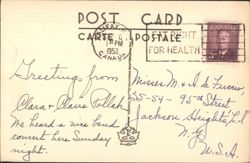 POST CARD
CARTE POSTALE
6
PM
1950
CANADA
FIGHT
FOR HEALTH
Greetings from
Clara & Claire Pollak
We heard a nice band
concert here Sunday
night.
Misses M & A de
35-54-95th Street
Jackson Heights, L.I.
N.Y.
U.S.A.